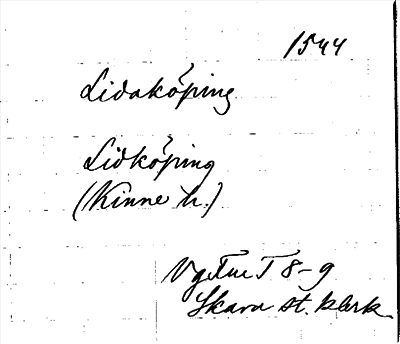 1544
Lidaköping
Lidköping
(Kinne h.)
Vg Fue T 8-9
Skara st. klerk.